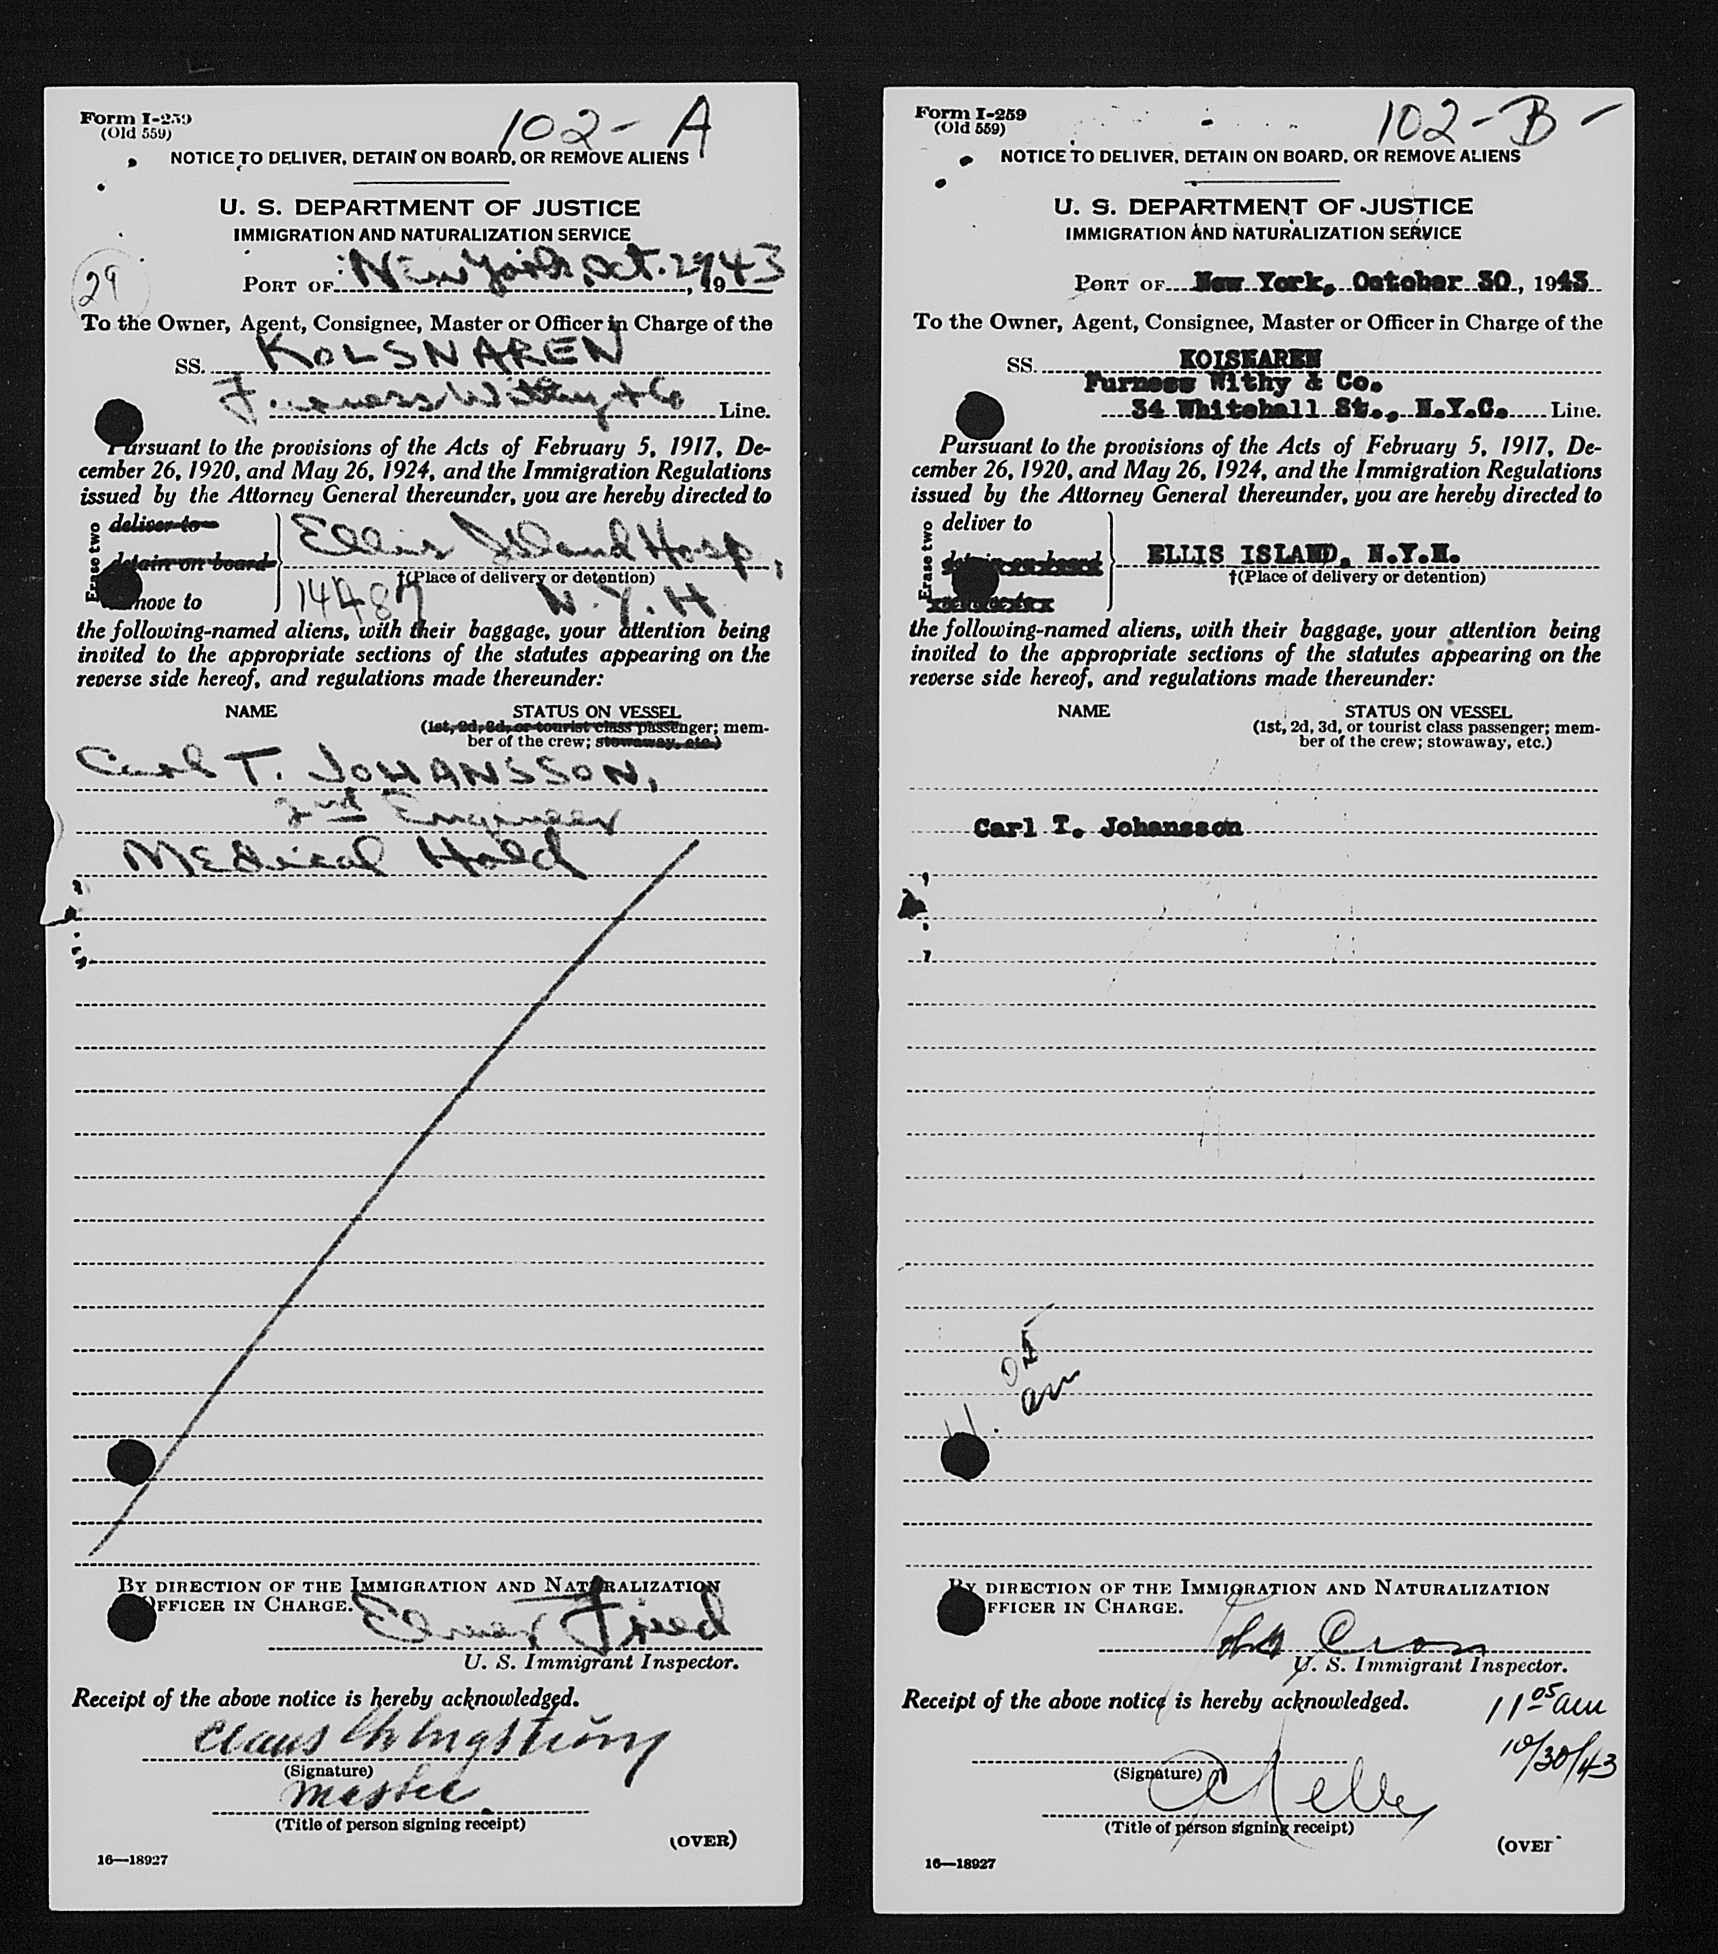 Form I-259
(Old 559)
102-A
NOTICE TO DELIVER, DETAIN ON BOARD, OR REMOVE ALIENS
U. S. DEPARTMENT OF JUSTICE
IMMIGRATION AND NATURALIZATION SERVICE
29
PORT OF New York, Oct. 29, 1943
To the Owner, Agent, Consignee, Master or Officer in Charge of the
SS. KOLSNAREN
Furness Withy & Co Line.
Pursuant to the provisions of the Acts of February 5, 1917, De-
cember 26, 1920, and May 26, 1924, and the Immigration Regulations
issued by the Attorney General thereunder, you are hereby directed to
Erase two
deliver to
detain on board
remove to
Ellis Island Hosp,
†(Place of delivery or detention)
14487 N.Y.H.
the following-named aliens, with their baggage, your attention being
invited to the appropriate sections of the statutes appearing on the
reverse side hereof, and regulations made thereunder:
NAME STATUS ON VESSEL
(1st, 2d, 3d, or tourist class passenger; mem-
ber of the crew; stowaway, etc.)
Carl T. JOHANSSON,
2nd Engineer
Medical Hold
BY DIRECTION OF THE IMMIGRATION AND NATURALIZATION
OFFICER IN CHARGE.
Elmer Fried
U. S. Immigrant Inspector.
Receipt of the above notice is hereby acknowledged.
Claus
(Signature)
master.
(Title of person signing receipt)
(OVER)
16—18927
Form I-259
(Old 559)
102-B-
NOTICE TO DELIVER, DETAIN ON BOARD, OR REMOVE ALIENS
U. S. DEPARTMENT OF JUSTICE
IMMIGRATION AND NATURALIZATION SERVICE
PORT OF New York, October 30, 1943
To the Owner, Agent, Consignee, Master or Officer in Charge of the
SS. KOLSNAREN
Furness Withy & Co.
34 Whitehall St., N.Y.C. Line.
Pursuant to the provisions of the Acts of February 5, 1917, De-
cember 26, 1920, and May 26, 1924, and the Immigration Regulations
issued by the Attorney General thereunder, you are hereby directed to
Erase two
deliver to
detain on board
ELLIS ISLAND, N.Y.H.
†(Place of delivery or detention)
the following-named aliens, with their baggage, your attention being
invited to the appropriate sections of the statutes appearing on the
reverse side hereof, and regulations made thereunder:
NAME STATUS ON VESSEL
(1st, 2d, 3d, or tourist class passenger; mem-
ber of the crew; stowaway, etc.)
Carl T. Johansson
11.05 am
BY DIRECTION OF THE IMMIGRATION AND NATURALIZATION
OFFICER IN CHARGE.
U. S. Immigrant Inspector.
Receipt of the above notice is hereby acknowledged.
11 05 am
10/30/43
(Signature)
(Title of person signing receipt)
(OVER
16—18927